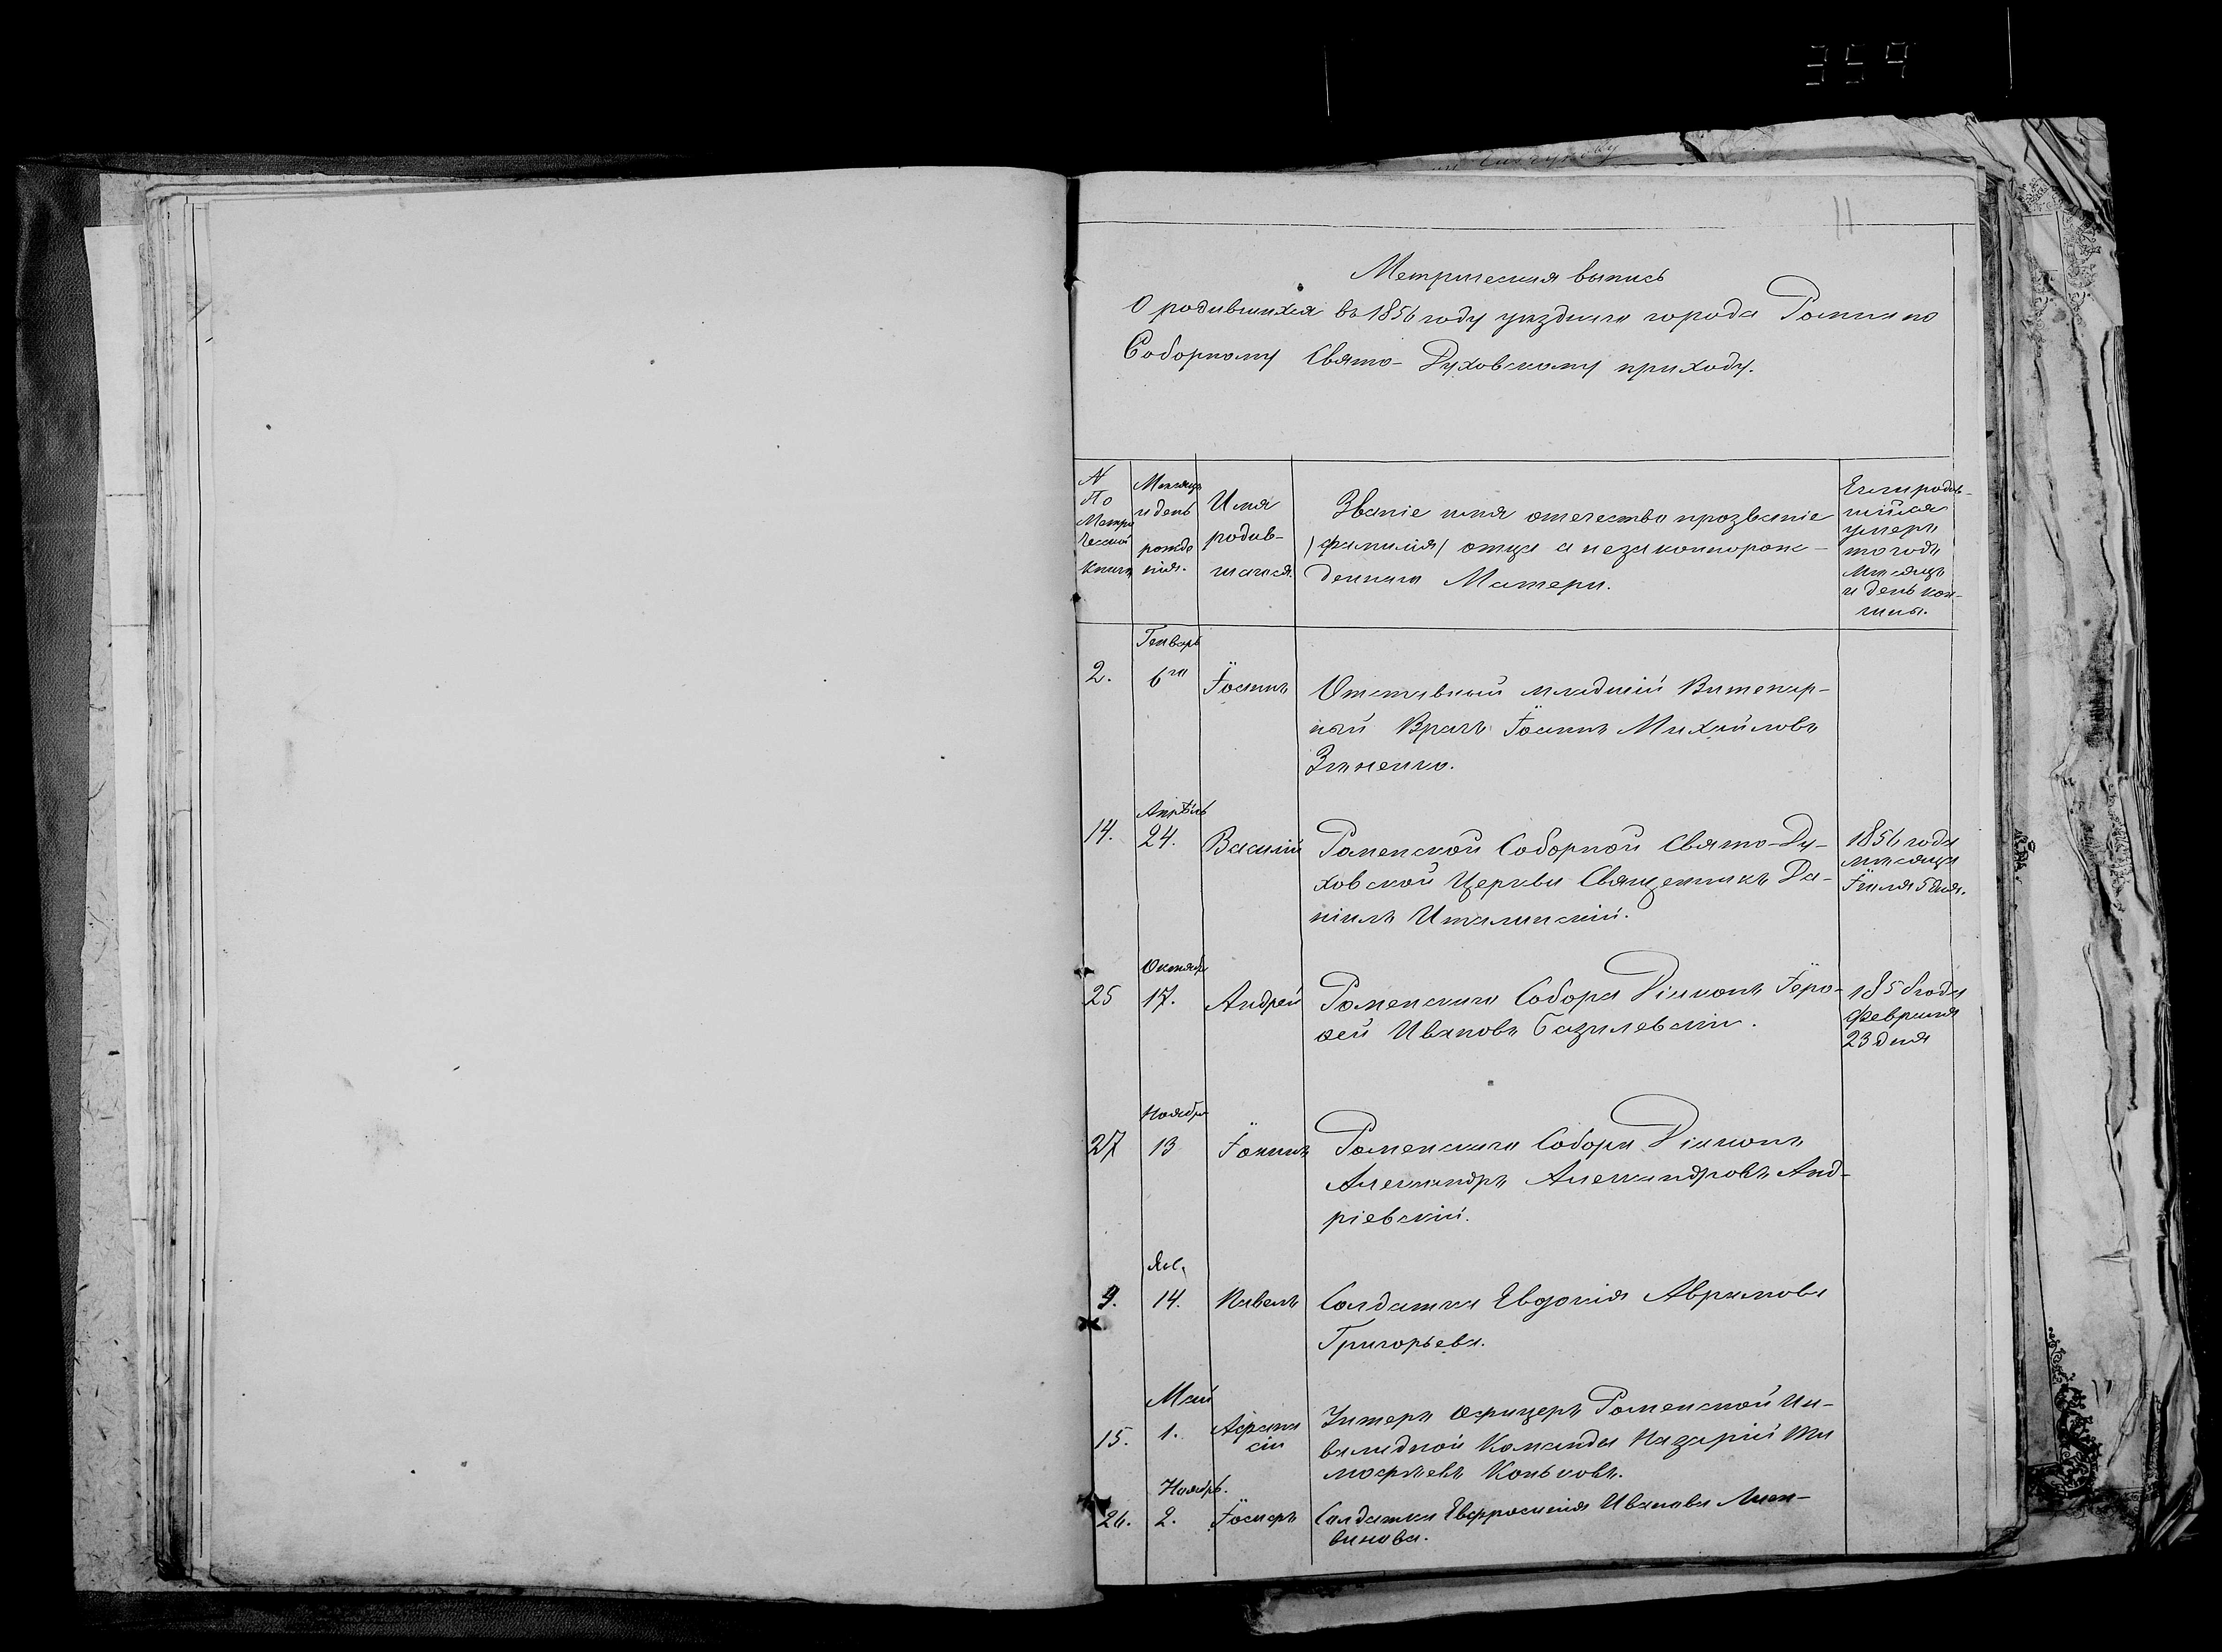 359
11
Метрическая выпись
О родившихся въ 1856 году уѣзднаго города Ромна по
Соборному Свято-Духовскому приходу.
N По Метрической книгѣ
Мѣсяцъ и день рожденія.
Имя родившагося.
Званіе имя отечество прозваніе
/фамилія/ отца а незаконнорож-
деннаго Матери.
Если родив-
шійся
умеръ
то годъ
мѣсяцъ
и день кон-
чины.
Генварь
2. 6го Іоаннъ Отставный младшій Витенар-
ный Врачъ Іоаннъ Михайловъ
Зѣненко.
Апрѣль
14. 24. Василій Роменской Соборной Свято-Ду- 1856 года
ховской Церкви Священникъ Да- мѣсяца
ніилъ Италинскій. Іюля 5 дня.
Октябр
25 17. Андрей Роменскаго Собора Діаконъ Іеро- 1858 года
ѳей Ивановъ Базилевскій. Февраля
23 дня
Ноябрь
27 13 Іоаннъ Роменскаго Собора Діаконъ
Александръ Александровъ Анд-
ріевскій.
9. 14. Павелъ Солдатка Евдокія Аврамова
Григорьева.
Май
15. 1. Афана Унтеръ Офицеръ Роменской Ин-
сій валидной Команды Назарій Ти
мофѣевъ Коньковъ.
Ноябрь.
26. 2. Іосифъ Солдатка Евфросинія Иванова Лит-
винова.